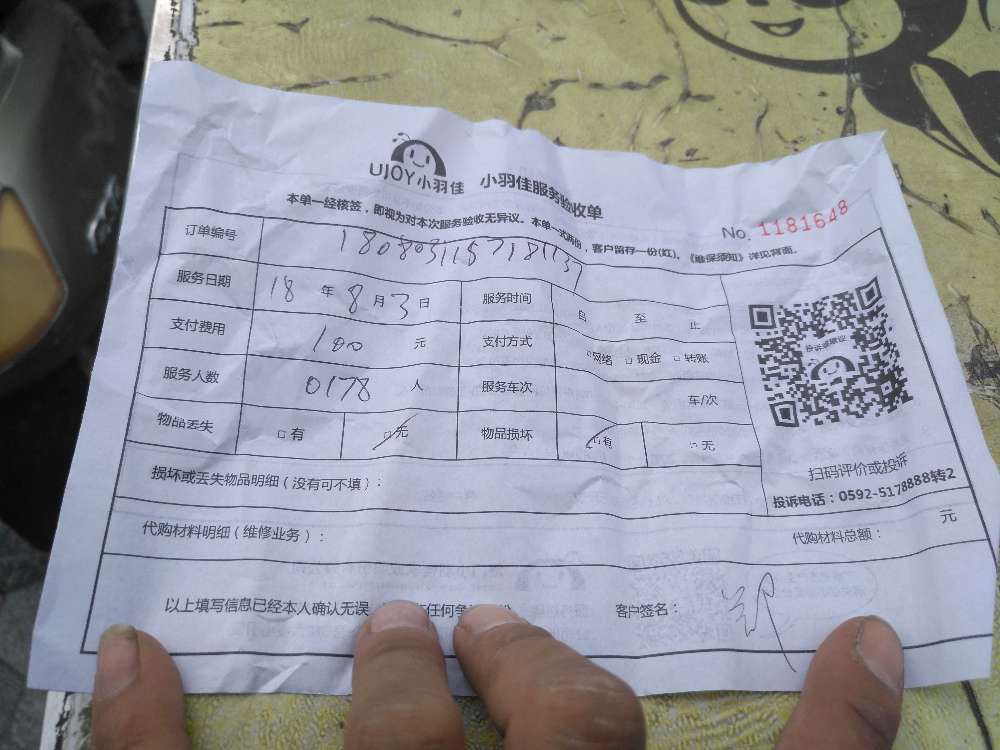 UJOY小羽佳 小羽佳服务验收单
No. 1181648
本单一经核签，即视为对本次服务验收无异议。本单一式两份，客户留存一份(红)。《维保须知》详见背面。
订单编号 1808031157181137
服务日期 18 年 8 月 3 日 服务时间 自 至 止
支付费用 100 元 支付方式 □网络 □现金 □转账
服务人数 0178 人 服务车次 车/次
物品丢失 □有 □无 物品损坏 □有 □无
扫码评价或投诉
投诉电话：0592-5178888转2
损坏或丢失物品明细（没有可不填）：
代购材料明细（维修业务）： 代购材料总额： 元
以上填写信息已经本人确认无误 任何 客户签名：